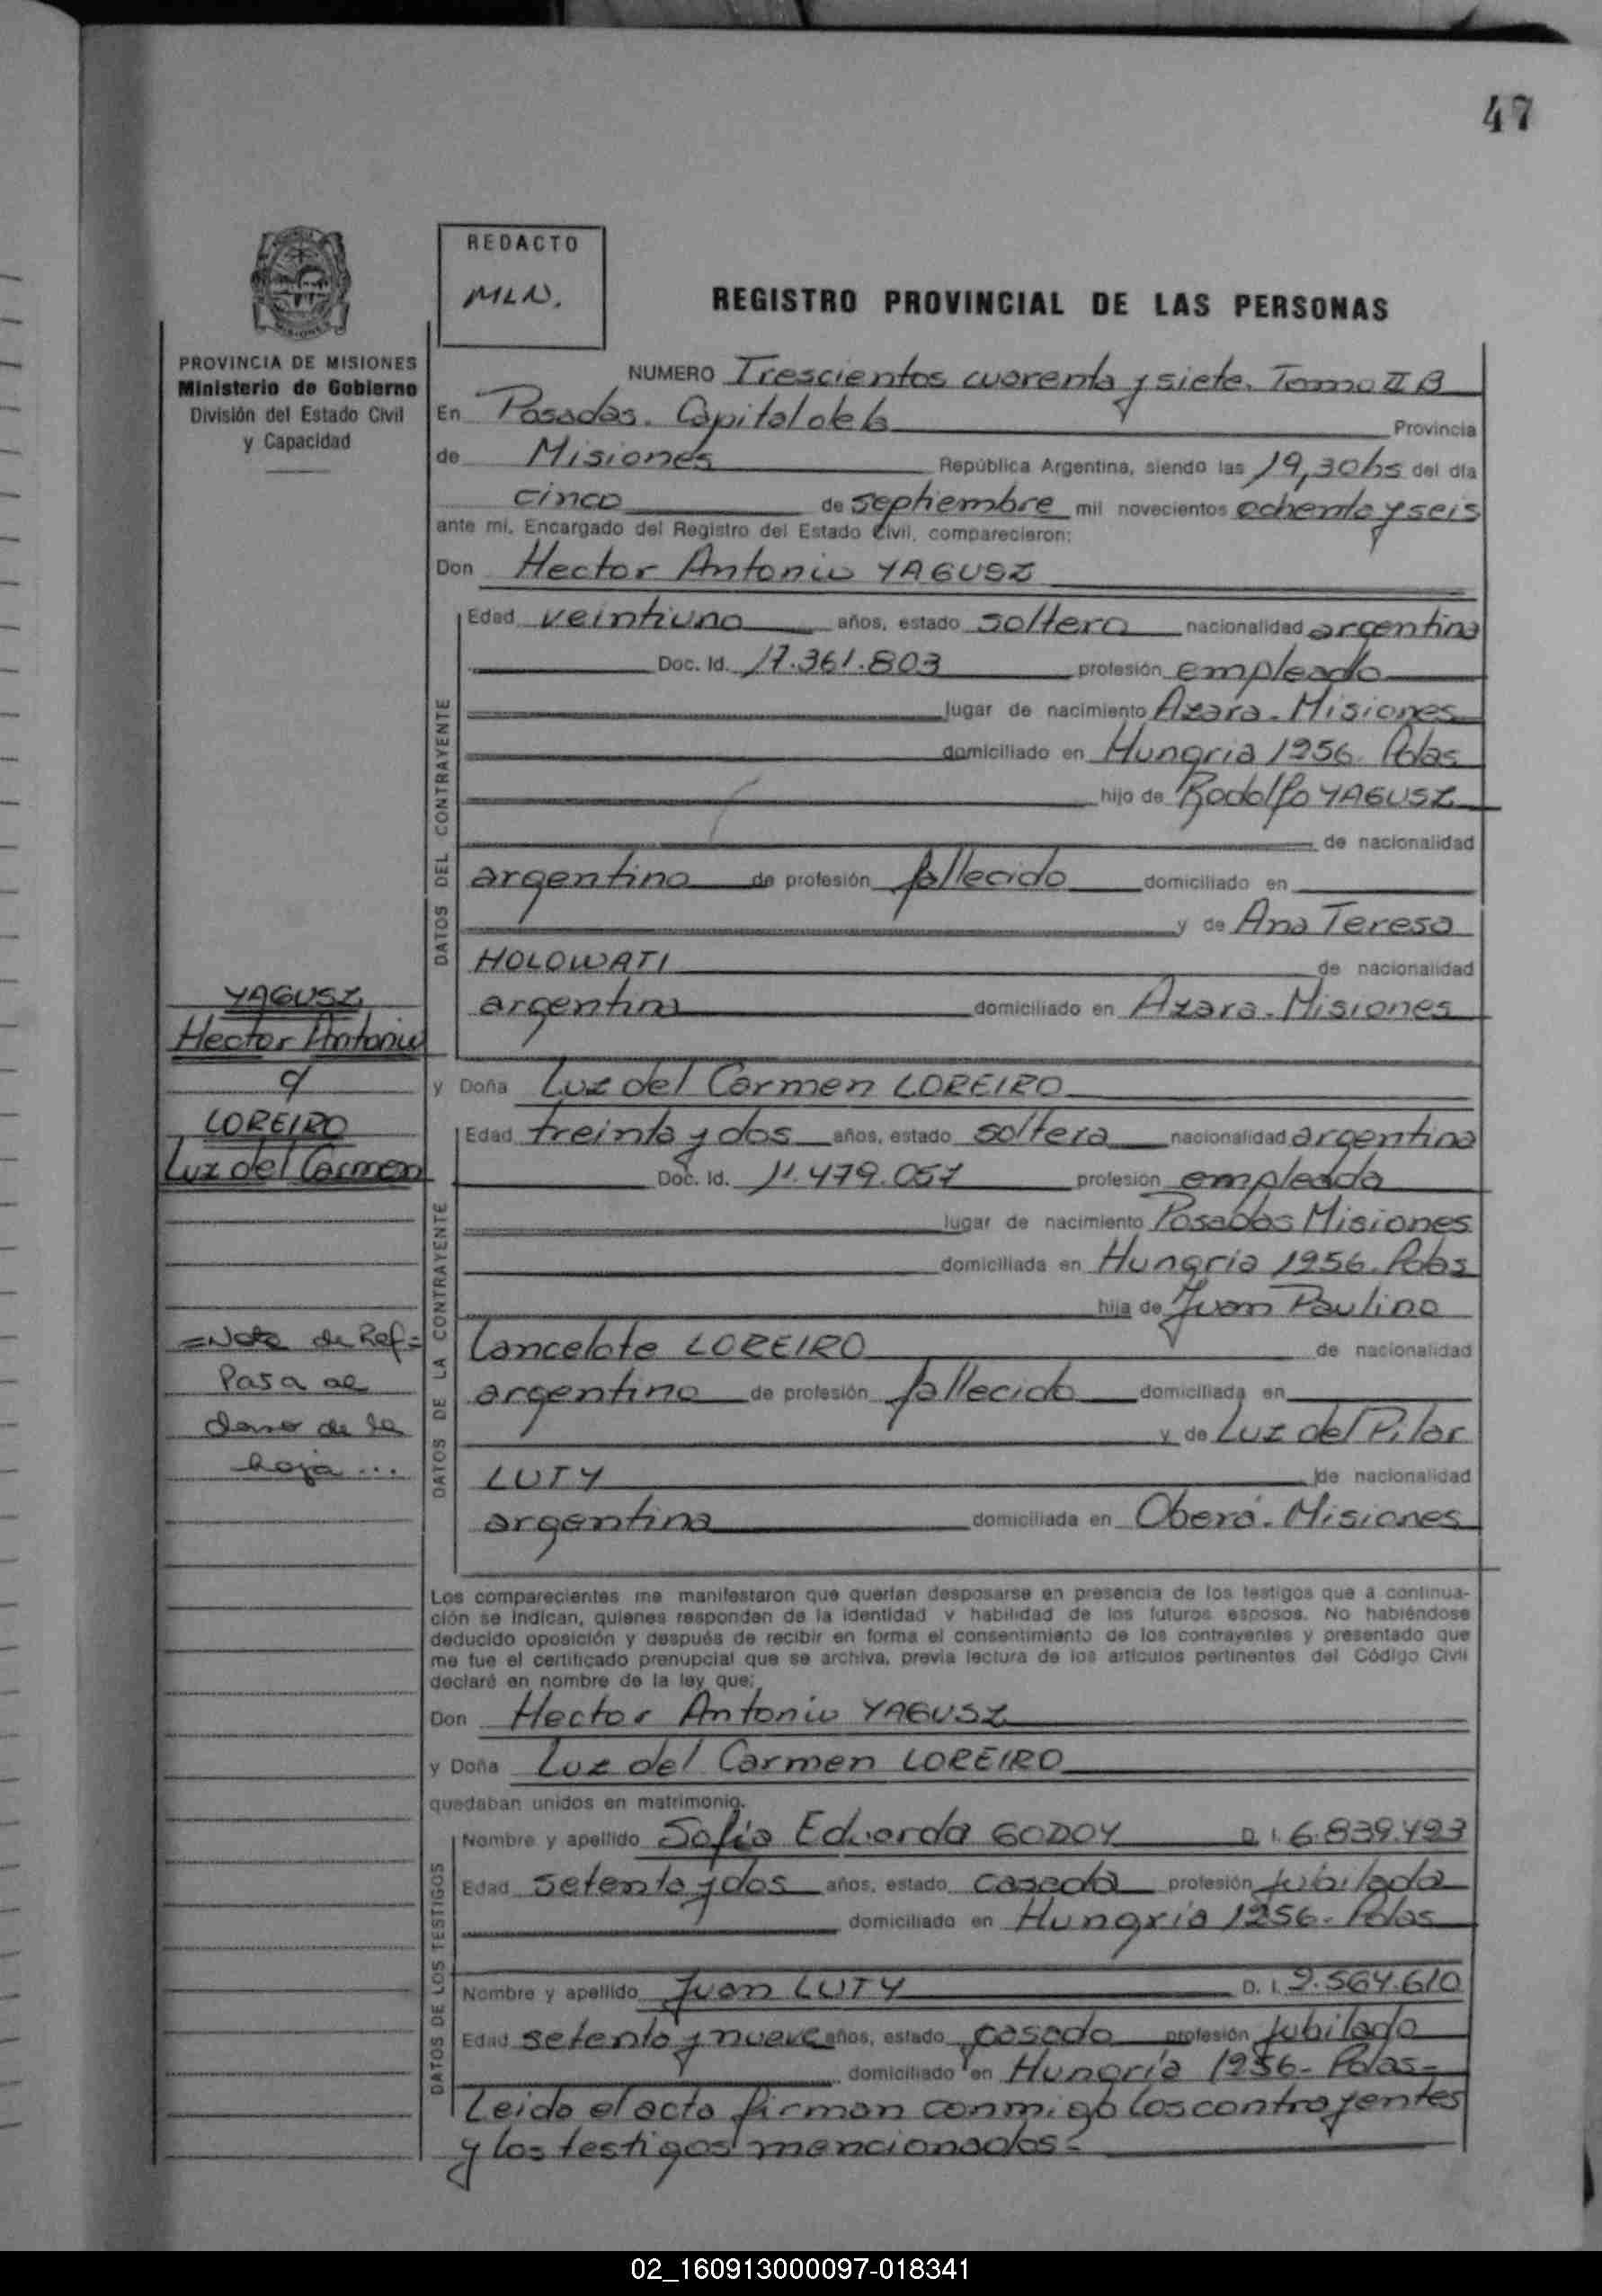 47
REDACTO
MLN.
REGISTRO PROVINCIAL DE LAS PERSONAS
PROVINCIA DE MISIONES
Ministerio de Gobierno
División del Estado Civil
y Capacidad
NUMERO Trescientos cuarenta y siete. Tomo II B
En Posadas. Capital de la Provincia
de Misiones República Argentina, siendo las 19,30hs del día
cinco de septiembre mil novecientos ochenta y seis
ante mí, Encargado del Registro del Estado Civil, comparecieron:
Don Hector Antonio YAGUSZ
DATOS DEL CONTRAYENTE
Edad veintiuno años, estado soltero nacionalidad argentina
Doc. Id. 17.361.803 profesión empleado
lugar de nacimiento Azara - Misiones
domiciliado en Hungria 1256. Pdas
hijo de Rodolfo YAGUSZ
de nacionalidad
argentino de profesión fallecido domiciliado en
y de Ana Teresa
HOLOWATI de nacionalidad
argentina domiciliado en Azara - Misiones
YAGUSZ
Hector Antonio
c/
LOREIRO
Luz del Carmen
y Doña Luz del Carmen LOREIRO
DATOS DE LA CONTRAYENTE
Edad treinta y dos años, estado soltera nacionalidad argentina
Doc. Id. 11.479.057 profesión empleada
lugar de nacimiento Posadas Misiones
domiciliada en Hungria 1256. Pdas
hija de Juan Paulino
Lancelote LOREIRO de nacionalidad
argentino de profesión fallecido domiciliada en
y de Luz del Pilar
LUTY de nacionalidad
argentina domiciliada en Oberá. Misiones
=Nota de Ref=
Pasa al
dorso de la
hoja...
Los comparecientes me manifestaron que querían desposarse en presencia de los testigos que a continua-
ción se indican, quienes responden de la identidad y habilidad de los futuros esposos. No habiéndose
deducido oposición y después de recibir en forma el consentimiento de los contrayentes y presentado que
me fue el certificado prenupcial que se archiva, previa lectura de los artículos pertinentes del Código Civil
declaré en nombre de la ley que;
Don Hector Antonio YAGUSZ
y Doña Luz del Carmen LOREIRO
quedaban unidos en matrimonio.
DATOS DE LOS TESTIGOS
Nombre y apellido Sofia Eduarda GODOY D. I. 6.839.493
Edad setenta y dos años, estado casada profesión jubilada
domiciliado en Hungria 1256 - Pdas
Nombre y apellido Juan LUTY D. I. 2.564.610
Edad setenta y nueve años, estado casado profesión jubilado
domiciliado en Hungría 1256 - Pdas -
Leida el acta firman conmigo los contrayentes
y los testigos mencionados -
02_160913000097-018341